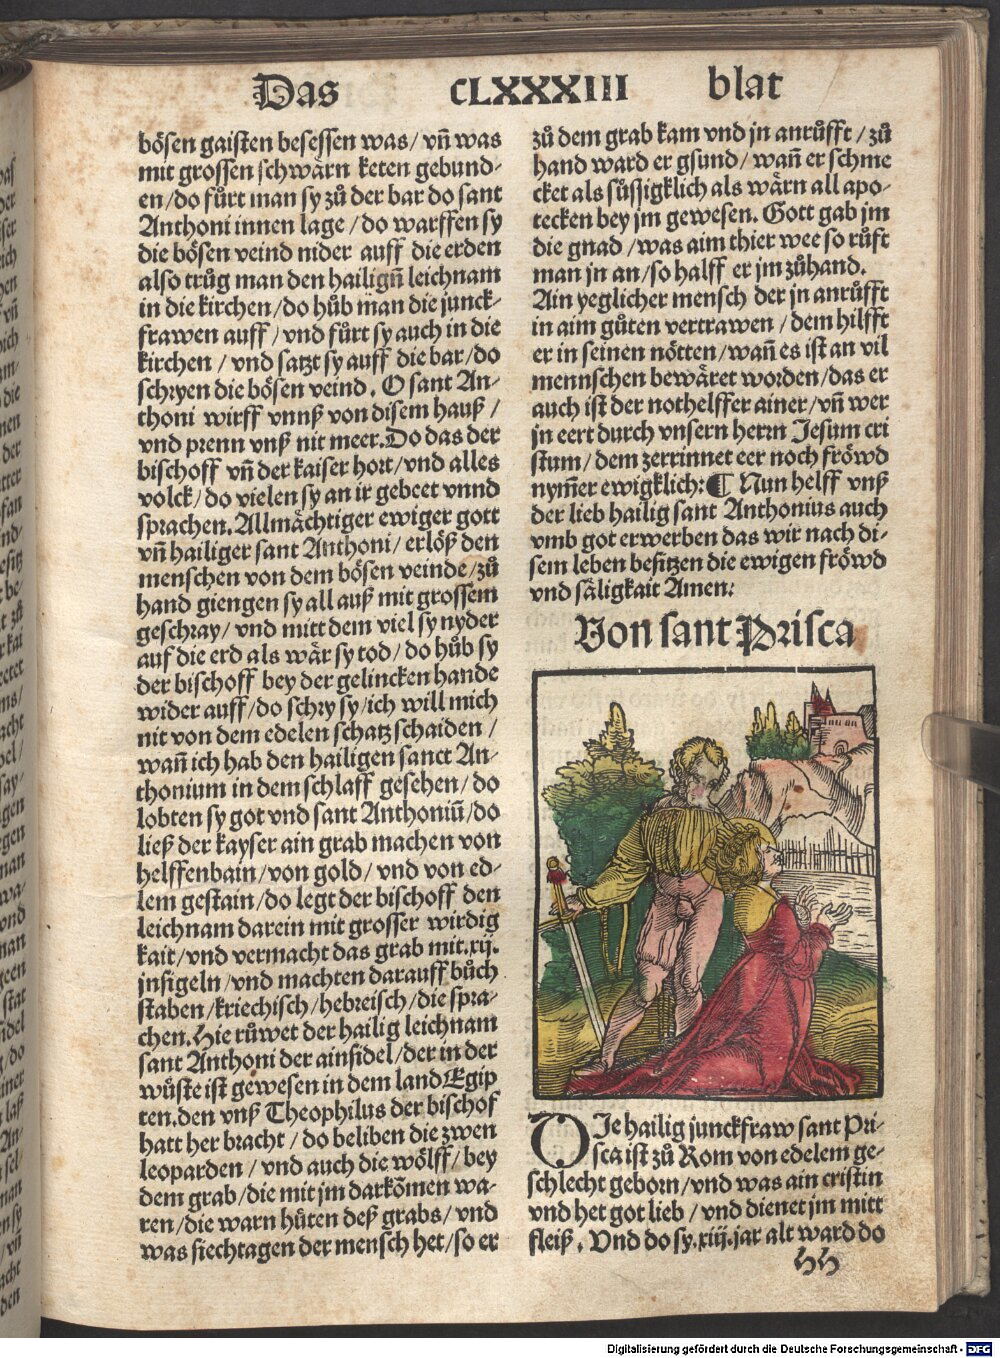 Das CLXXXIII blat
bösen gaisten besessen was/ vn̄ was
mit grossen schwärn keten gebund-
en/do fůrt man sy zů der bar do sant
Anthoni innen lage/do warffen sy
die bösen veind nider auff die erden
also trůg man den hailign̄ leichnam
in die kirchen/do hůb man die junck-
frawen auff/vnd fůrt sy auch in die
kirchen/vnd satzt sy auff die bar/do
schryen die bösen veind. O sant An-
thoni wirff vnnß von disem hauß/
vnd prenn vnß nit meer. Do das der
bischoff vn̄ der kaiser hort/vnd alles
volck/do vielen sy an ir gebeet vnnd
sprachen. Allmächtiger ewiger gott
vn̄ hailiger sant Anthoni/erlöß den
menschen von dem bösen veinde/zů
hand giengen sy all auß mit grossem
geschray/vnd mitt dem viel sy nyder
auf die erd als wär sy tod/do hůb sy
der bischoff bey der gelincken hande
wider auff/do schry sy/ich will mich
nit von dem edelen schatz schaiden/
wan̄ ich hab den hailigen sanct An-
thonium in dem schlaff gesehen/do
lobten sy got vnd sant Anthoniū/do
ließ der kayser ain grab machen von
helffenbain/von gold/vnd von ed-
lem gestain/do legt der bischoff den
leichnam darein mit grosser wirdig
kait/vnd vermacht das grab mit.xij.
insigeln/vnd machten darauff bůch
staben/kriechisch/hebreisch/die spra-
chen. Hie růwet der hailig leichnam
sant Anthoni der ainsidel/der in der
wůste ist gewesen in dem land Egip
ten.den vnß Theophilus der bischof
hatt her bracht/do beliben die zwen
leoparden/vnd auch die wölff/bey
dem grab/die mit jm darkōmen wa-
ren/die warn hůten deß grabs/vnd
was siechtagen der mensch het/so er
zů dem grab kam vnd jn anrůfft/zů
hand ward er gsund/wan̄ er schme
cket als sůssigklich als wärn all apo-
tecken bey jm gewesen. Gott gab jm
die gnad/was aim thier wee so růft
man jn an/so halff er jm zůhand.
Ain yeglicher mensch der jn anrůfft
in aim gůten vertrawen/dem hilfft
er in seinen nötten/wan̄ es ist an vil
mennschen bewäret worden/das er
auch ist der nothelffer ainer/vn̄ wer
jn eert durch vnsern herrn Jesum cri
stum/dem zerrinnet eer noch fröwd
nym̄er ewigklich: ¶ Nun helff vnß
der lieb hailig sant Anthonius auch
vmb got erwerben das wir nach di-
sem leben besitzen die ewigen fröwd
vnd säligkait Amen:
Von sant Prisca
DIe hailig junckfraw sant Pri-
sca ist zů Rom von edelem ge-
schlecht geborn/vnd was ain cristin
vnd het got lieb/vnd dienet jm mitt
fleiß. Vnd do sy.xiij.jar alt ward do
hh
Digitalisierung gefördert durch die Deutsche Forschungsgemeinschaft - DFG